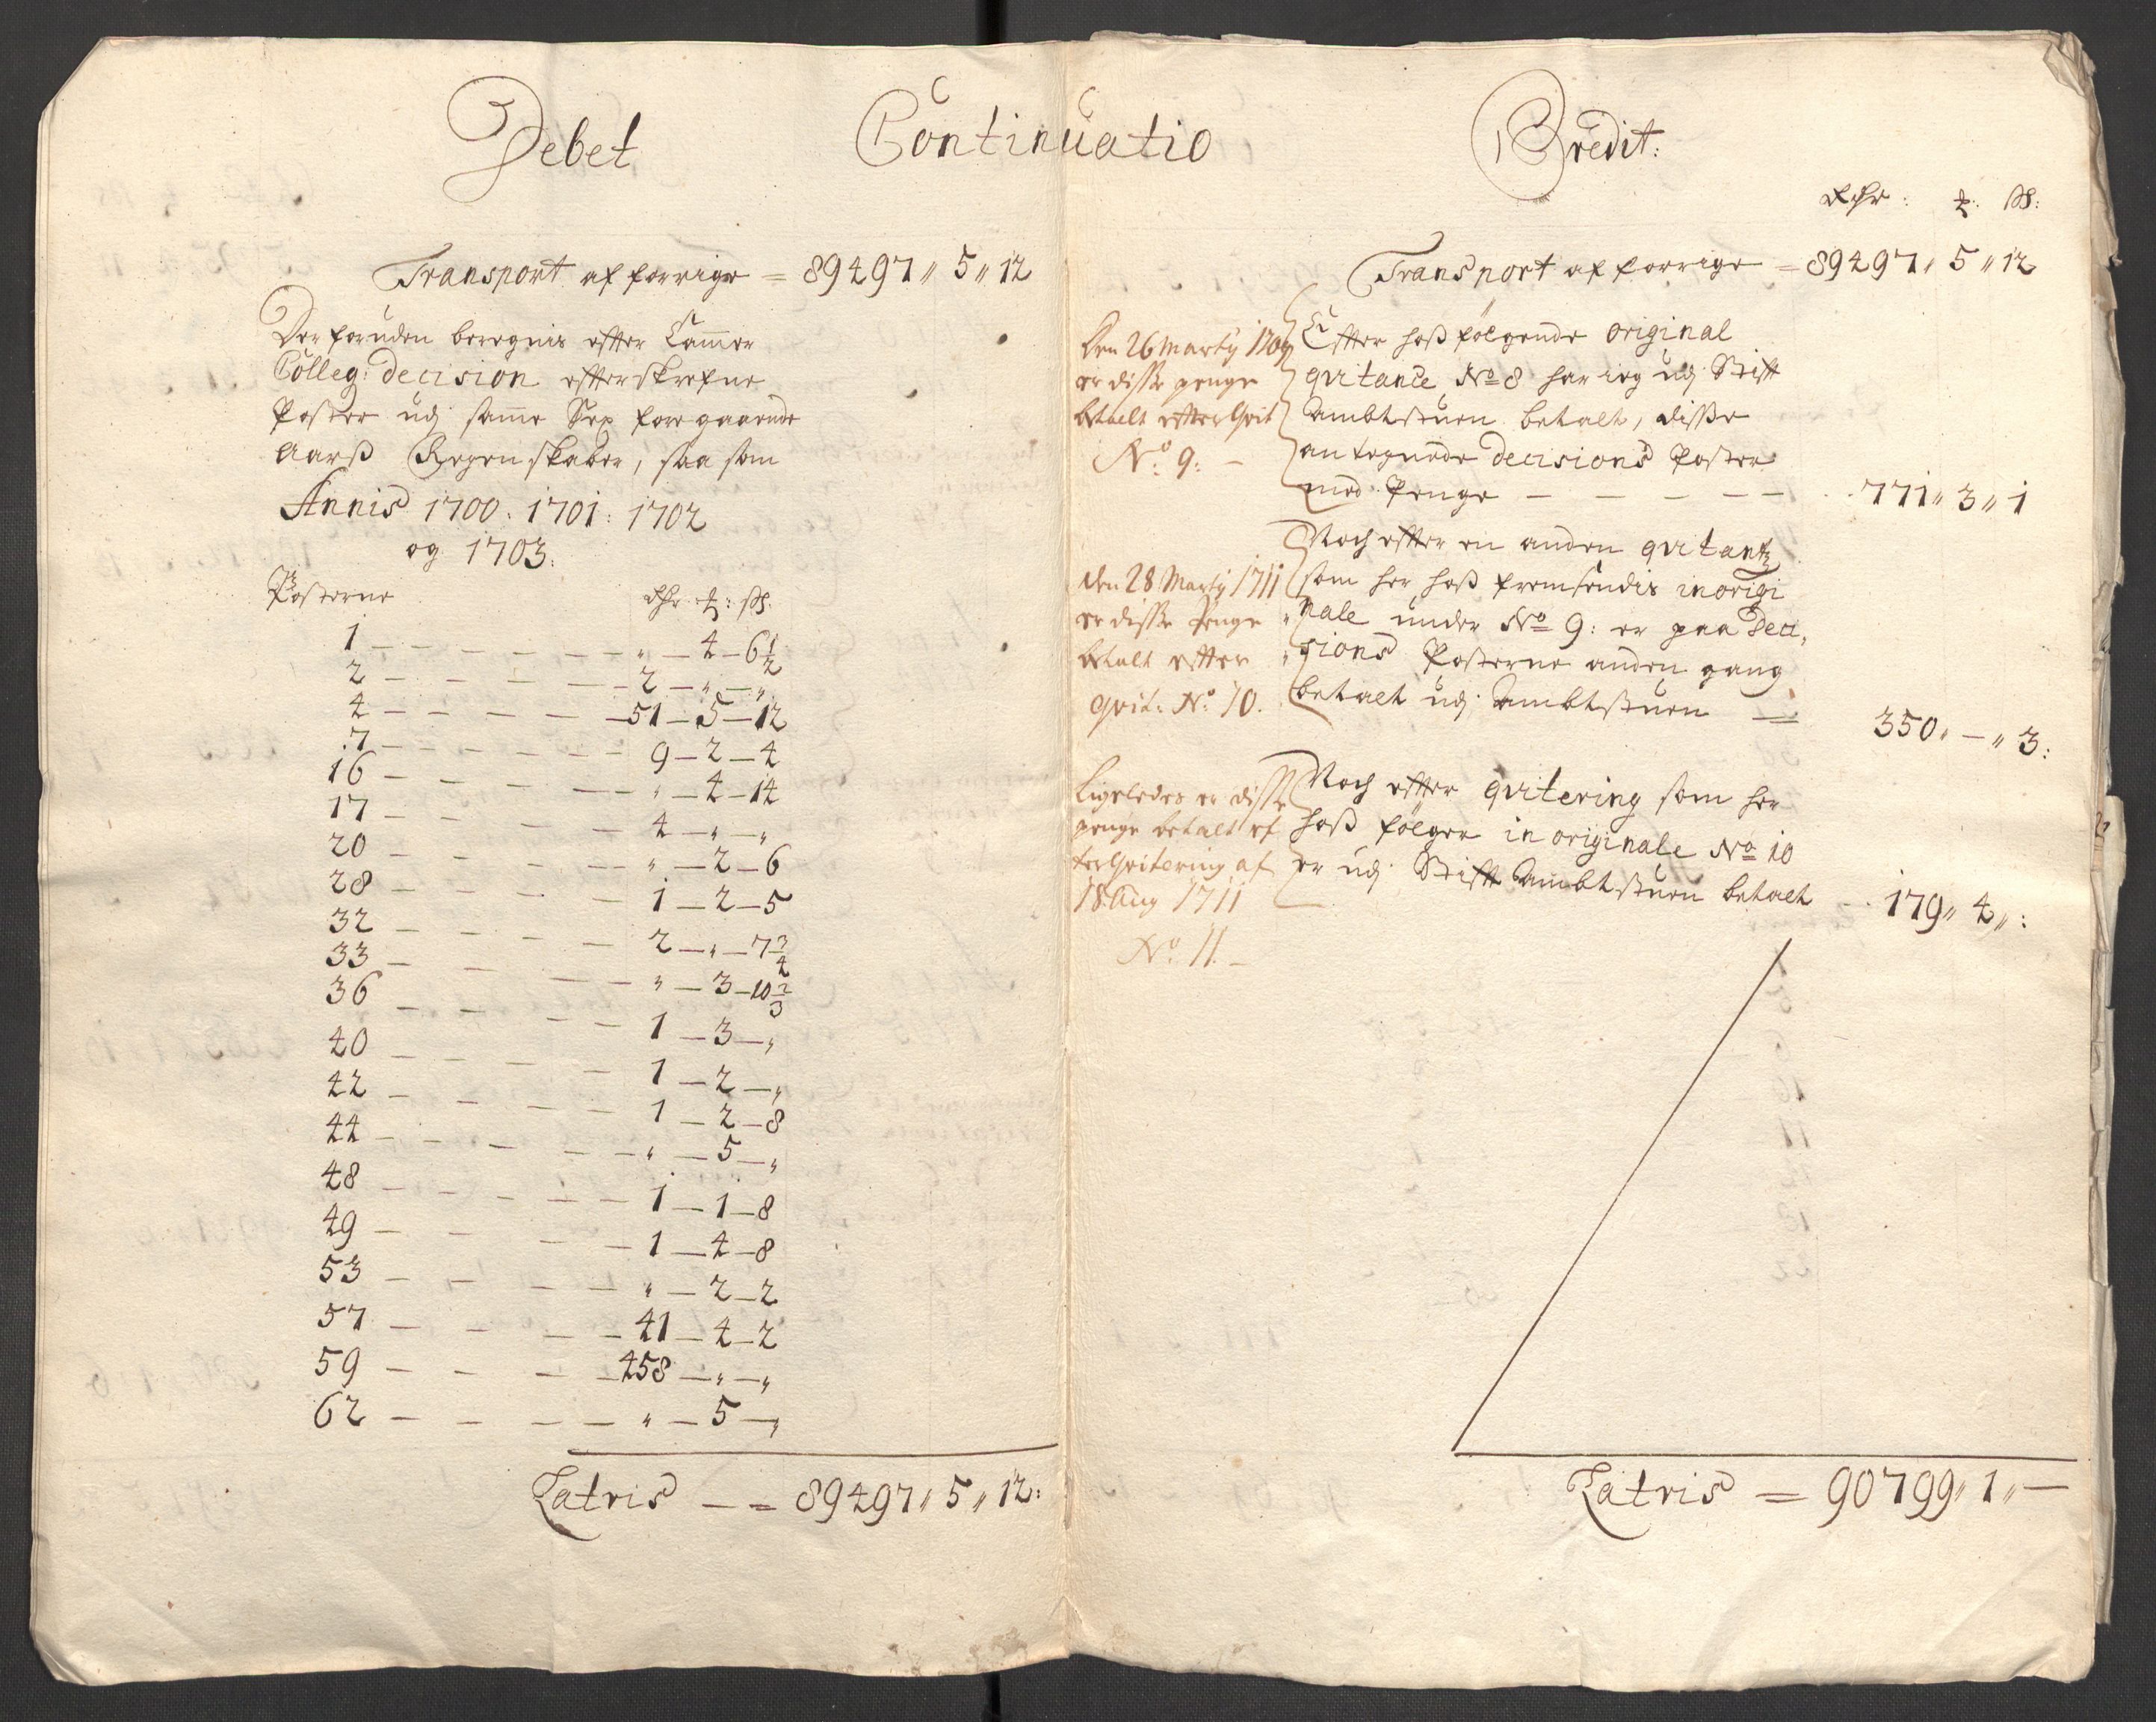 Debet Continuatio Credit:
Transport af forrige = 89497 〃 5 〃 12
Der foruden beregnis efter Cammer
Colleg: decision efterskrefne
Poster udj samme Sex foregaaende
Aarß Regenskaber, saa som
Annis 1700. 1701: 1702
og 1703:
Posterne Rdr: ⚹: ß:
1 — — — — — — 〃 — 4 — 6 1/2
2 — — — — — 2 — 〃 — 〃
4 — — — — — 51 — 5 — 12
7 — — — — — — 9 — 2 — 4
16 — — — — — 〃 — 4 — 14
17 — — — — 4 — 〃 — 〃
20 — — — — — 〃 — 2 — 6
28 — — — — 1 — 2 — 5
32 — — — — 2 — 〃 — 7 3/4
33 — — — — — 〃 — 3 — 10 2/3
36 — — — — — 1 — 3 — 〃
40 — — — — 1 — 2 — 〃
42 — — — — — 1 — 2 — 8
44 — — — — — 〃 — 5 — 〃
48 — — — — — — 1 — 1 — 8
49 — — — — 1 — 4 — 8
53 — — — — 〃 — 2 — 2
57 — — — — 41 — 4 — 2
59 — — — — 458 — 〃 — 〃
62 — — — — 〃 — 5 — 〃
Latris — = 89497 〃 5 〃 12:
Rdr: ⚹: ß:
Transport af forrige = 89497 〃 5 〃 12
Efter hoßfølgende original
qvitance No 8 har ieg udj Stift
Ambtstuen betalt, disse
antegnede decisions Poster
med Penge — — — — — 771 〃 3 〃 1
Noch efter en anden qvitantz
som her hoß fremsendis in origi
nale under No 9: er paa deci,
sions Posterne anden gang
betalt udj Ambtstuen — 350 〃 — 〃 3:
Noch efter qvitering som her
hoß følger in originale No 10
er udj Stift Ambtstuen betalt - 179 〃 4 〃:
Den 26 Martij
er disse penge
betalt efter Qvit
No: 9: —
den 28 Martij 1711
er disse Penge
betalt efter
qvit: No: 10.
Ligeledes er disse
penge betalt ef
ter Qvitering af
18 Aug 1711
No: 11. —
Latris = 90799 〃 1 〃 —